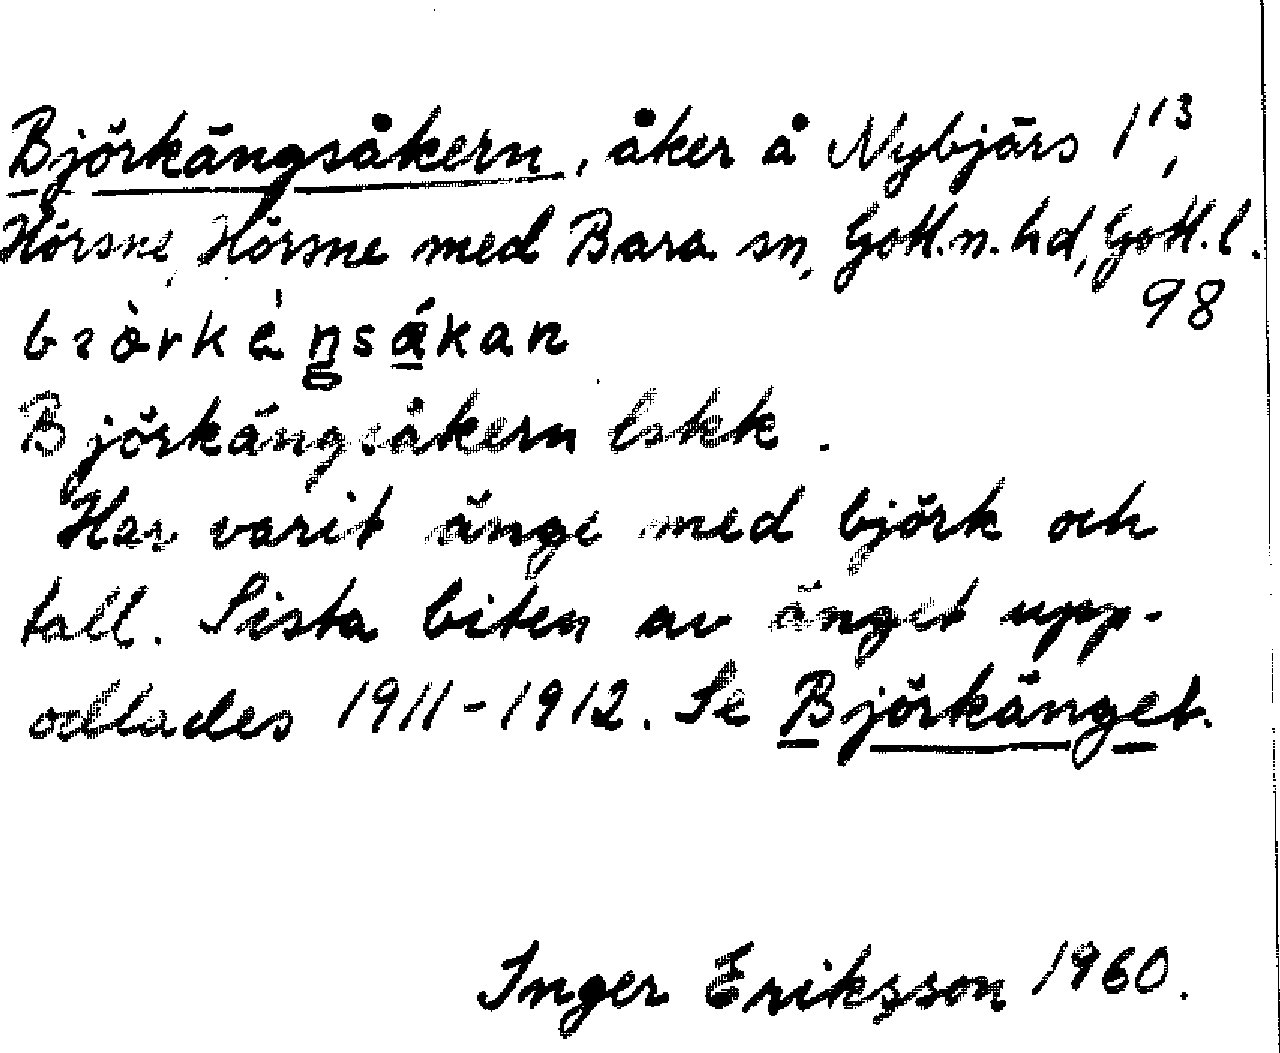 Björkängsåkern, åker å Nybjärs 1¹³,
Hörsne, Hörsne med Bara sn, Gotl.n.hd, Gotl.l.
98
Björkängsåkern lskk.
Har varit änge med björk och
tall. Sista biten av änget upp-
odlades 1911-1912. Se Björkänget.
Inger Eriksson 1960.